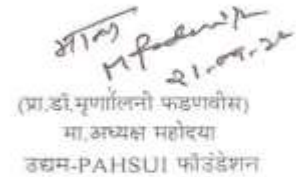 मान्य
(प्रा.डॉ.मृणालिनी फडणवीस)
मा.अध्यक्ष महोदया
उद्यम-PAHSUI फौंडेशन